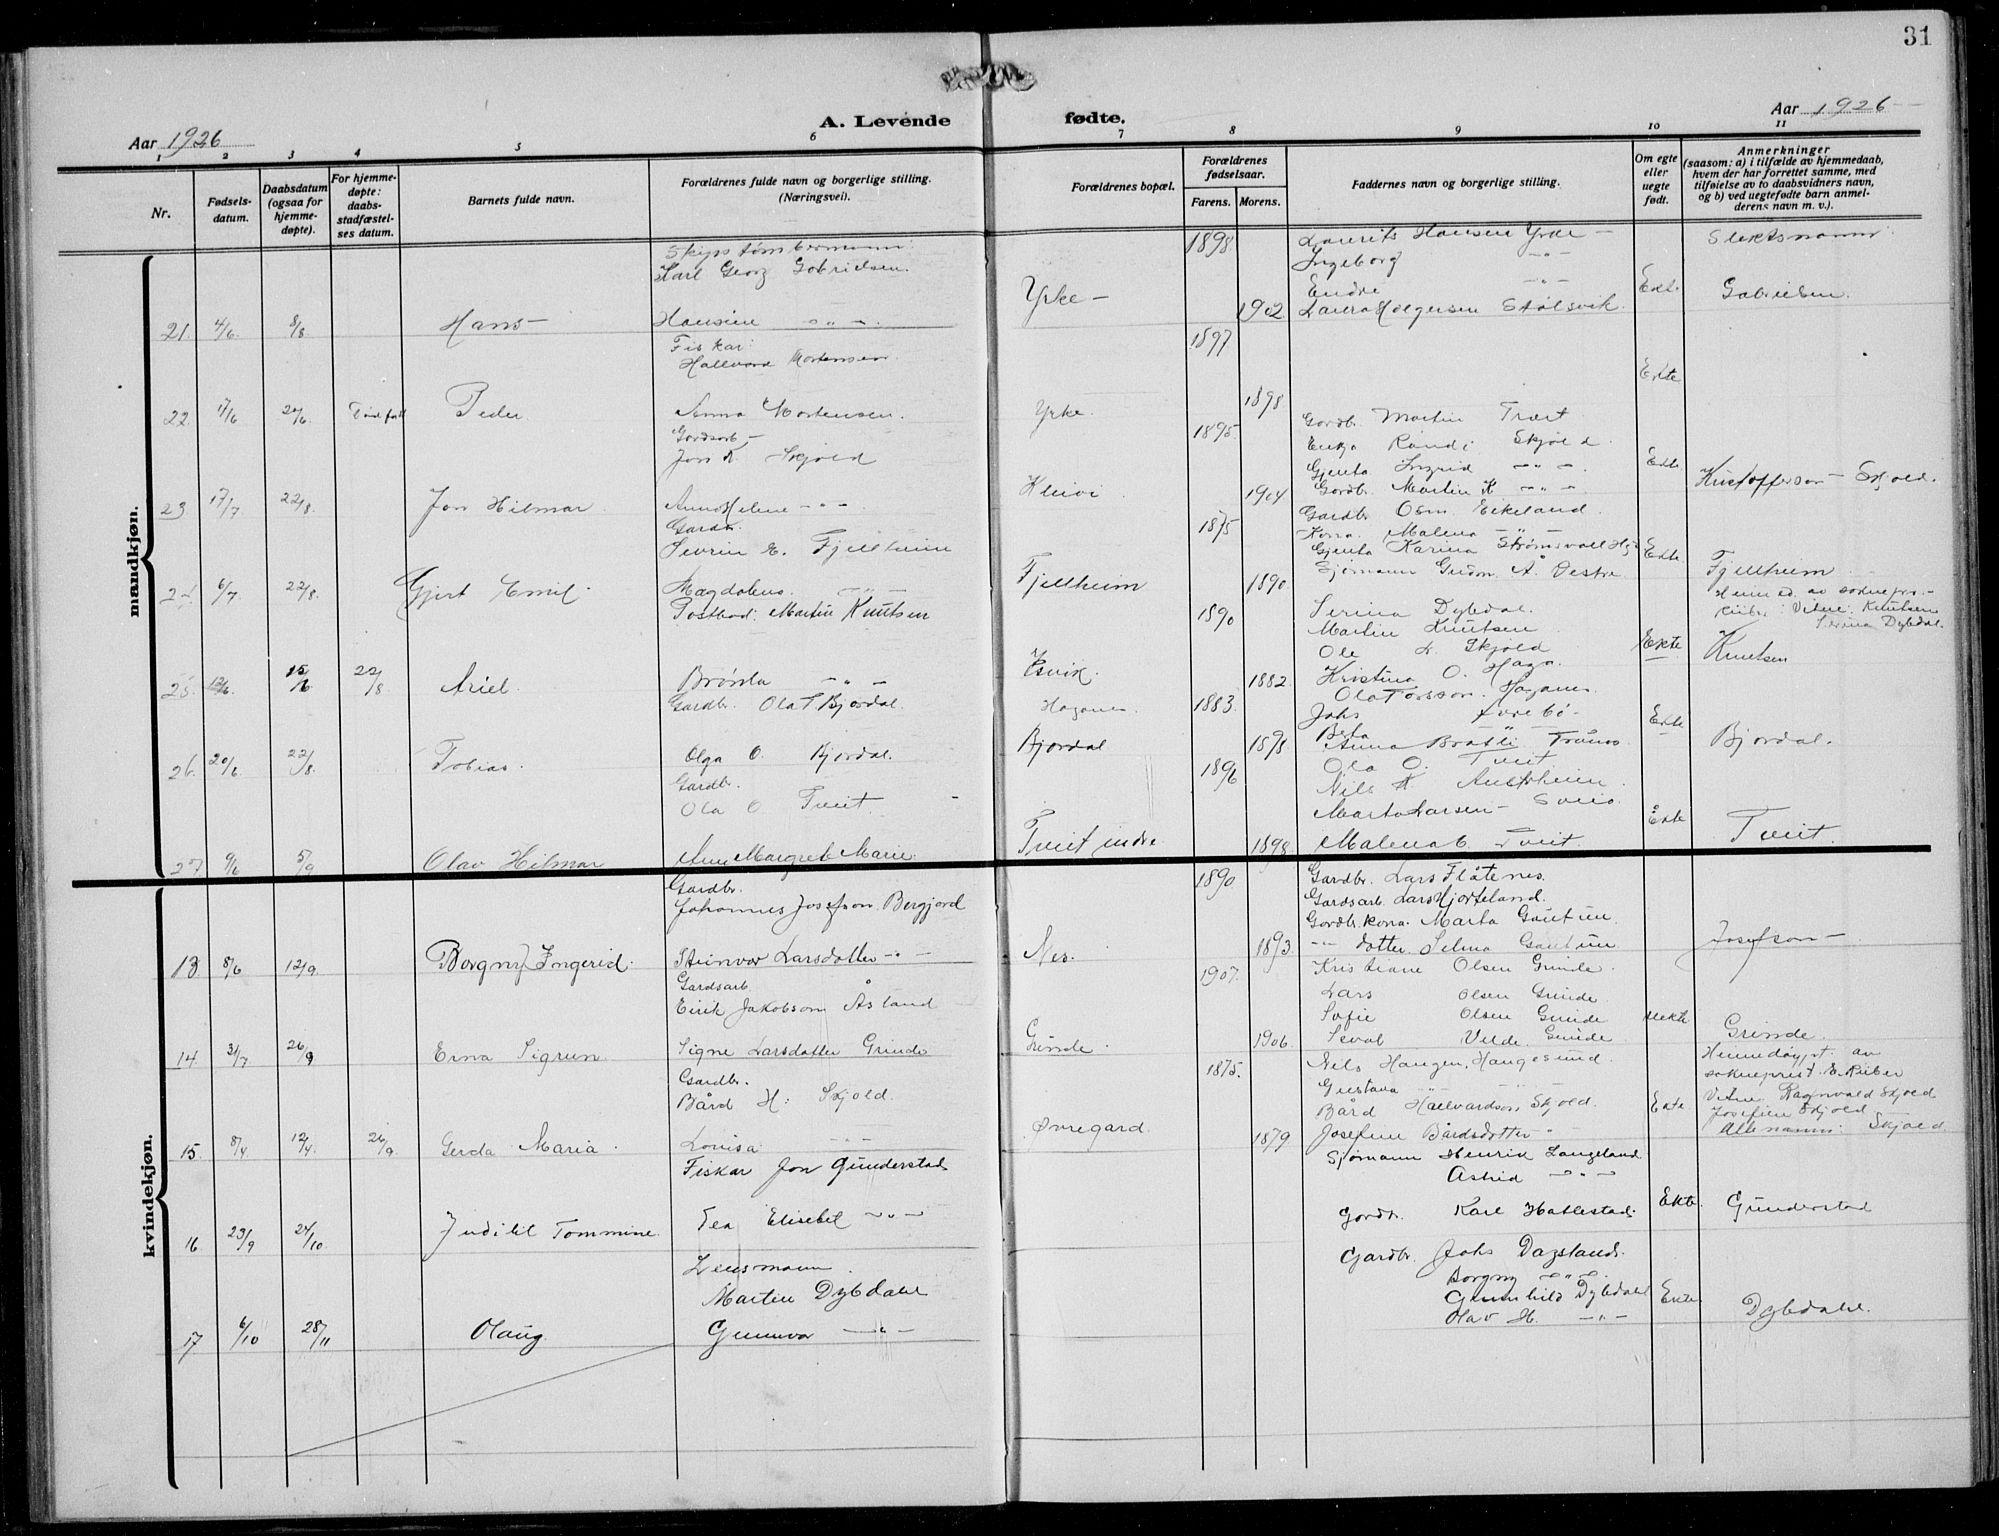 31
A. Levende fødte.
Aar 1926
Aar 1926
1 2 3 4 5 6 7 8 9 10 11
Nr.
Fødsels-
datum.
Daabsdatum
(ogsaa for
hjemme-
døpte).
For hjemme-
døpte:
daabs-
stadfæstel-
ses datum.
Barnets fulde navn.
Forældrenes fulde navn og borgerlige stilling.
(Næringsvei).
Forældrenes bopæl.
Forældrenes
fødselsaar.
Farens. Morens.
Faddernes navn og borgerlige stilling.
Om egte
eller
uegte
født.
Anmerkninger
(saasom: a) i tilfælde av hjemmedaab,
hvem der har forrettet samme, med
tilføielse av to daabsvidners navn,
og b) ved uegtefødte barn anmel-
derens navn m. v.).
mandkjøn.
Karl Georg Gabrielsen.
21. 4/6 8/8 Hans Hansine
Yrke 1898 1902
Laurits Hansen Yrke
Ingeborg
Endre
Laura Holgersen Stølsvik.
Ekte
Gabrielsen.
Fiskar:
Hallvard Mortensen
22 17/6 Peder Anna Mortensen.
Yrke 1897 1898 Ekte
Gardsarb
Jon K. Skjold
23 17/7 22/8 Jon Hilmar Anna Helene
Kleivi 1895 1904
Gardbr. Martin Træet
Enkja Randi Skjold
Gjenta Ingrid
Gardbr. Martin K
Ekte
Kristofferson - Skjold.
Gardbr.
Sevrin E. Fjellheim
6/7 22/8 Gjert Emil Magdalena
Fjellheim 1875 1890
Gardbr Osm. Eikeland.
Kona Malena
Gjenta Karina
Sjømann Gudm. Å Vestre
Ekte
Fjellheim
Postbod: Martin Knutsen
25. 15/6 22/8 Ariel Brønla
1890 1882
Serina Dybdal.
Martin Knutsen
Ole L. Skjold
Kristina O. Haga.
Ekte
Serina Dybdal.
Knutsen
Gardbr. Ola T Bjordal.
26. 20/6 22/8 Tobias. Olga O. Bjordal.
Bjordal 1883
Johs
Berta
Anna
Ekte
Bjordal.
Gardbr.
Ola O Tveit.
27 9/6 5/9 Olav Hilmar Anna Margret Marie
Tveit indre 1896 1898
Ola O. Tveit
Nils
Marta Larsen - Sveio.
Malena Tveit
Ekte
Tveit.
kvindekjøn.
Gardbr.
Johannes Josefson Bergjord
13 8/6 12/9 Borgny Ingerid. Steinvor Larsdotter
Nes. 1890 1893
Gardbr. Lars Flåtenes.
Gardsarb. Lars Hjorteland.
Gardbr. kona. Marta Gautun
dotter Selma Gautun
Josefson
Gardsarb.
Eirik Jakobson Åsland
14 31/7 26/9 Erna Sigrun Signe Larsdotter Grinde
Grinde. 1907. 1906.
Kristiane Olsen Grinde.
Lars Olsen Grinde.
Sofie Olsen Grinde
Grinde
Uekte
Grinde.
Gardbr.
Bård H. Skjold.
15. 8/4 12/4 26/9 Gerda Maria Lovisa
Øvregard. 1875. 1879
Nils Haugen, Haugesund.
Gustava
Bård Hallvardson Skjold.
Josefine Bårdsdotter
Ekte
Heimedøypt av
sokneprest E. Rieber
Vitne Ragnvald Skjold
Josefine Skjold
Skjold
Fiskar Jon Gunderstad
16 23/9 24/10 Judithl Tommine Tea Elisebet
Sjømann Henrik Langeland
Astrid
Gardbr. Karl Hatlestad
Ekte
Gunderstad
Lensmann
Martin Dybdahl
17 6/10 28/11 Olaug Gunnvor
Gardbr. Johs Dagsland.
Borgny
Gunnhild Dybdahl
Olav H.
Ekte
Dybdahl.